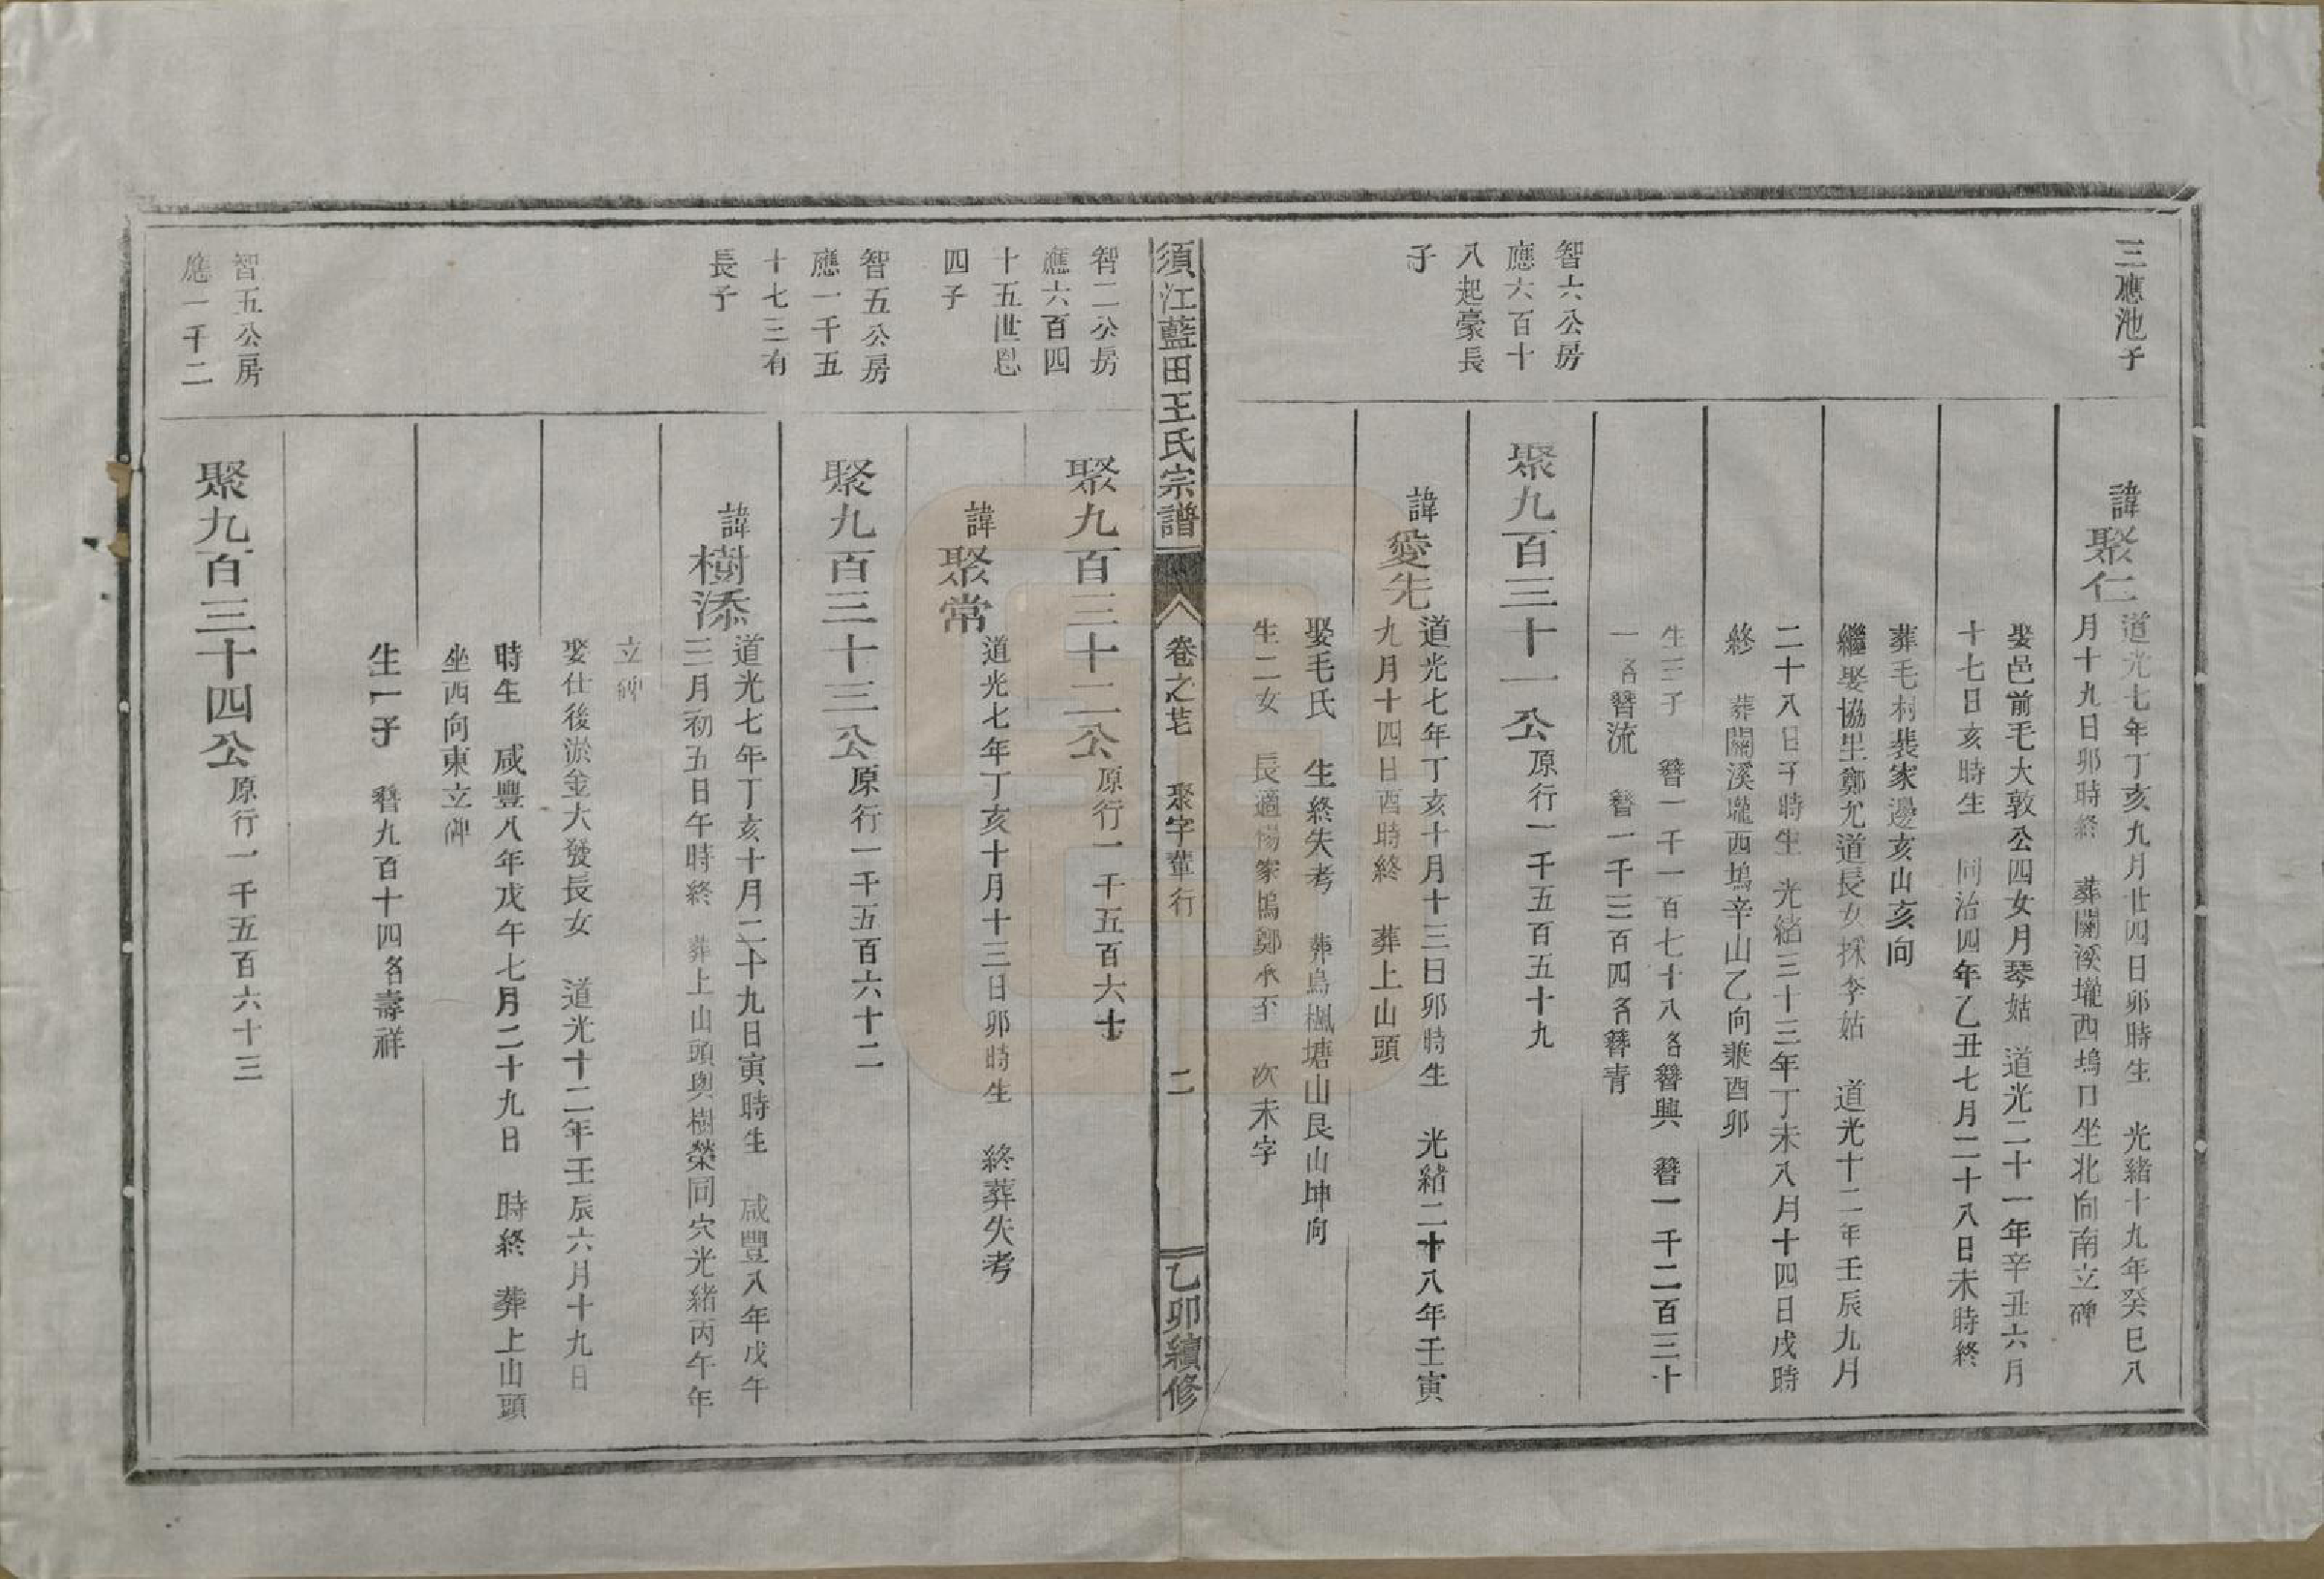 三應池子
諱聚仁
道光七年丁亥九月廿四日卯時生 光緒十九年癸巳八
月十九日卯時終 葬關溪壠西塢口坐北向南立碑
娶邑前毛大敦公四女月琴姑 道光二十一年辛丑六月
十七日亥時生 同治四年乙丑七月二十八日未時終
葬毛村裴家邊亥山亥向
繼娶協里鄭允道長女採李姑 道光十二年壬辰九月
二十八日子時生 光緒三十三年丁未八月十四日戌時
終 葬關溪壠西塢辛山乙向兼酉卯
生三子 簪一千一百七十八名簪興 簪一千二百三十
一名簪流 簪一千三百四名簪青
智六公房
應六百十
八起豪長
子
聚九百三十一公原行一千五百五十九
諱愛先
道光七年丁亥十月十三日卯時生 光緒二十八年壬寅
九月十四日酉時終 葬上山頭
娶毛氏 生終失考 葬烏楓塘山艮山坤向
生二女 長適楊家塢鄭承至 次未字
須江藍田王氏宗譜
卷之 聚字輩行
二
乙卯續修
智二公房
應六百四
十五世恩
四子
聚九百三十二公原行一千五百六十
諱聚常
道光七年丁亥十月十三日卯時生 終葬失考
智五公房
應一千五
十七三有
長子
聚九百三十三公原行一千五百六十二
諱樹添
道光七年丁亥十月二十九日寅時生 咸豐八年戊午
三月初五日午時終 葬上山頭與樹榮同穴光緒丙午年
立碑
娶仕後淤金大發長女 道光十二年壬辰六月十九日
時生 咸豐八年戊午七月二十九日 時終 葬上山頭
坐西向東立碑
生一子 簪九百十四名壽祥
智五公房
應一千二
聚九百三十四公原行一千五百六十三